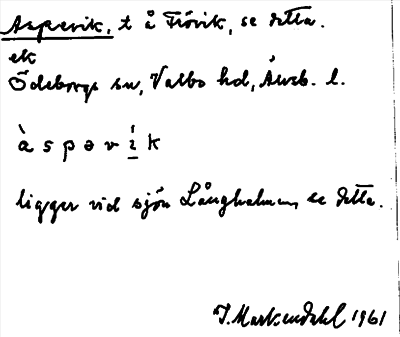 Aspevik, t å Fiövik, se detta.
ek
Ödeborgs sn, Valbo hd, Älvsb. l.
à s p ə v í̱ k
ligger vid sjön Långhalmen, se detta.
J. Markendahl 1961